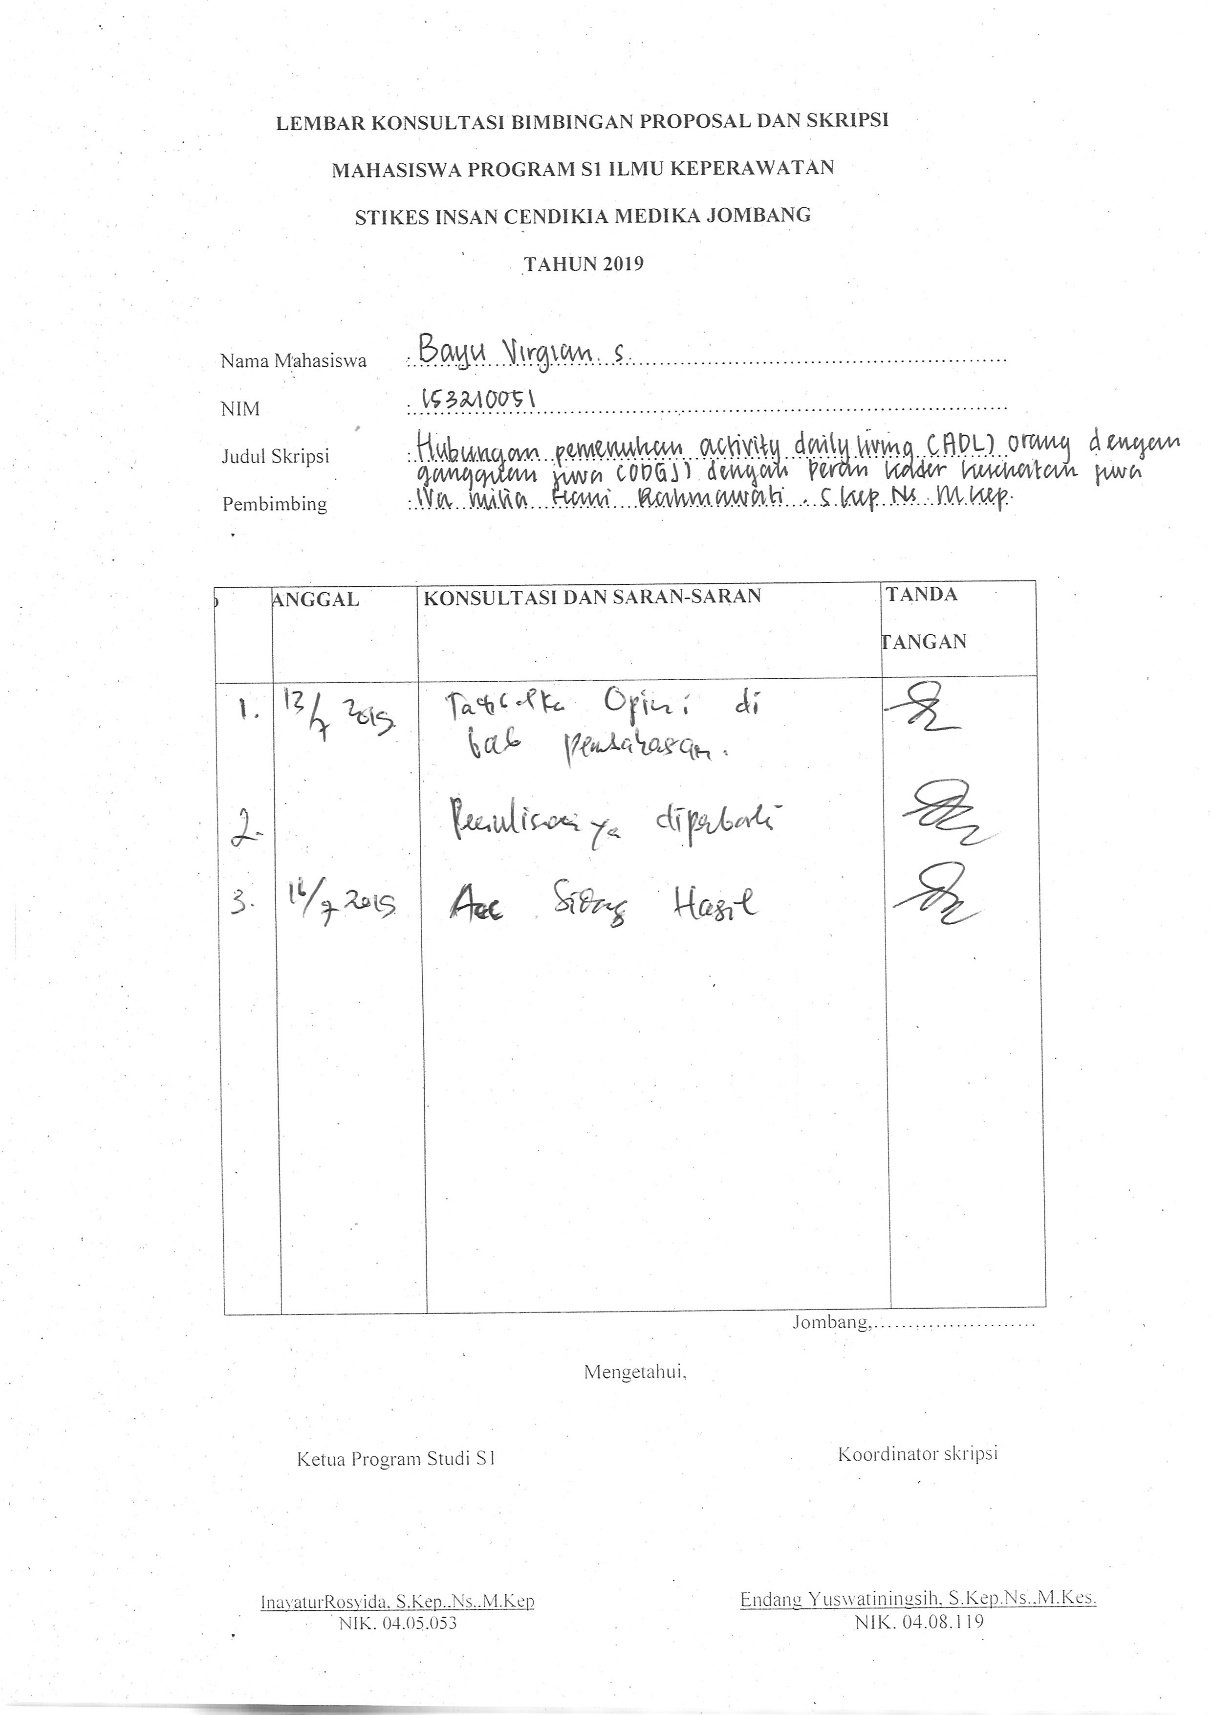 LEMBAR KONSULTASI BIMBINGAN PROPOSAL DAN SKRIPSI
MAHASISWA PROGRAM S1 ILMU KEPERAWATAN
STIKES INSAN CENDIKIA MEDIKA JOMBANG
TAHUN 2019
Nama Mahasiswa : Bayu Virgian. S.
NIM : 153210051
Judul Skripsi : Hubungan pemenuhan activity daily living (ADL) orang dengan
gangguan jiwa (ODGJ) dengan Peran kader kesehatan jiwa
Pembimbing : Hani Rahmawati. S.Kep.Ns. M.Kep.
ANGGAL KONSULTASI DAN SARAN-SARAN TANDA
TANGAN
1. 13/7 2019 Opini di
bab pembahasan.
2. Penulisan ya diperbaiki
3. 16/7 2019 Acc Sidang Hasil
Jombang,........................
Mengetahui,
Ketua Program Studi S1 Koordinator skripsi
InayaturRosyida, S.Kep.,Ns.,M.Kep Endang Yuswatiningsih, S.Kep.Ns.,M.Kes.
NIK. 04.05.053 NIK. 04.08.119